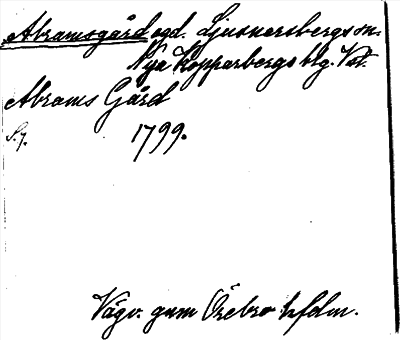 Abramsgård ogd. Ljusnarsbergs sn.
Nya Kopparbergs blg. Vstm.
Abrams Gård
S. 7. 1799.
Vägv. genm Örebro hfdm.